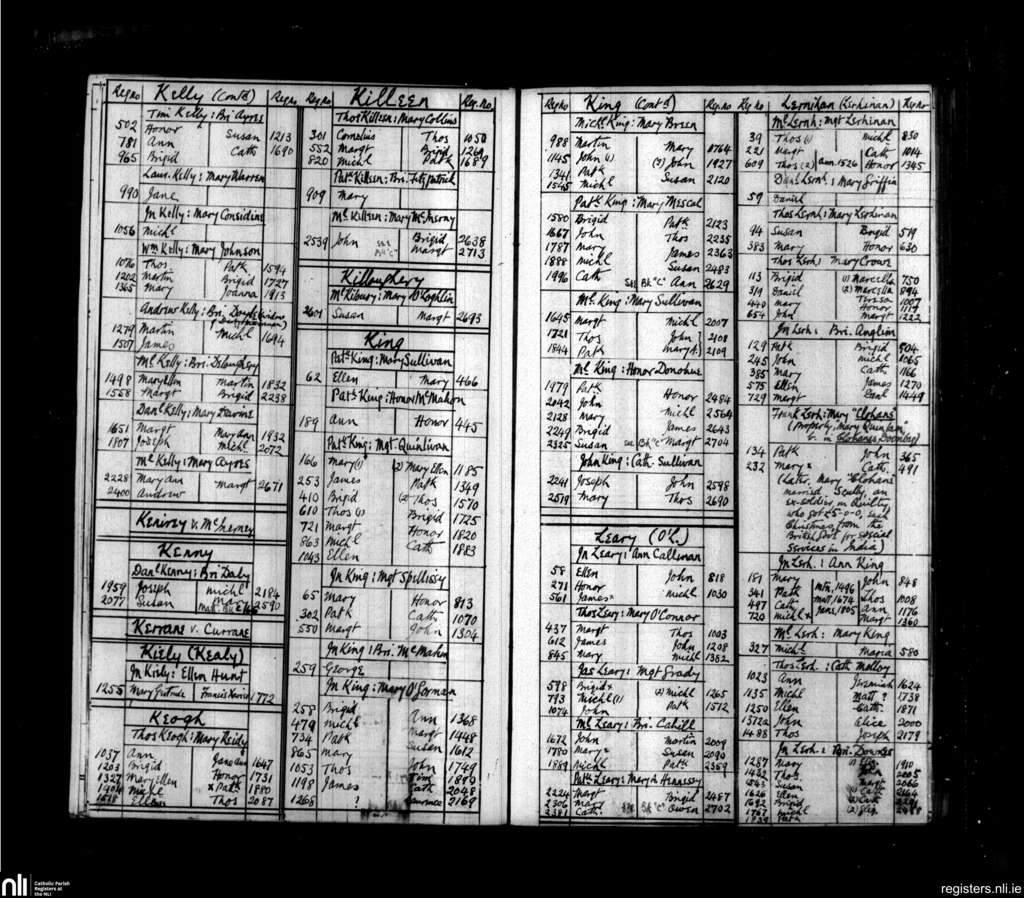 Reg no Kelly (Contd) Reg no
Tim Kelly : Bri Ayres
502 Honor Susan 1213
781 Ann Cath 1690
965 Brigid
Laur. Kelly : Mary Warren
990 Jane
Jn Kelly : Mary Considine
1056 Michl
Wm Kelly : Mary Johnson
1076 Thos Patk 1594
1202 Martin Brigid 1727
1365 Mary Joanna 1913
Andrew Kelly : Bri. Doyle (widow
1279 Martin Michl 1694
1507 James
Ml Kelly : Bri. Deloughery
1498 Mary Ellen Martin 1832
1558 Margt Brigid 2238
Danl Kelly : Mary
1651 Margt Mary Ann 1932
1807 Joseph Michl 2072
Ml Kelly : Mary Ayres
2228 Mary Ann Margt 2671
2400 Andrew
Kenirey v. McInerney
Kenny
Danl Kenny : Bri Daly
1959 Joseph Michl 2184
2077 Susan 2590
Kerrane v. Currane
Kiely (Kealy)
Jn Kiely : Ellen Hunt
1255 Mary Gertrude Francis 1772
Keogh
Thos Keogh : Mary Reidy
1037 Ann Jane Ann 1647
1203 Brigid Honor 1731
1327 Mary Ellen x Patk 1880
1404 Michl Thos 2087
Ellen
Reg no Killeen Reg. No
Thos Killeen : Mary Collins
301 Cornelius Thos 1050
552 Margt Brigid 1269
820 Michl Patk 1689
Patk Killeen : Bri. Fitzpatrick
909 Mary
Ml Killeen : Mary McInerny
2539 John Brigid 2638
See Bk "C" Margt 2713
Killoughery
Ml Kilowry : Mary O'Loghlin
2601 Susan Margt 2693
King
Patk King : Mary Sullivan
62 Ellen Mary 466
Patk King : Honor McMahon
189 Ann Honor 445
Patk King : Mgt Quinlivan
166 Mary (1) (2) Mary Ellen 1185
253 James Patk 1349
410 Brigid (2) Thos 1570
610 Thos (1) Brigid 1725
721 Margt Honor 1820
863 Michl Cath 1883
1043 Ellen
Jn King : Mgt Spillissy
65 Mary Honor 813
302 Patk Cath 1070
550 Margt John 1304
Jn King : Bri. McMahon
259 George
Jn King : Mary O'Gorman
258 Brigid Ann 1368
479 Michl Margt 1448
734 Patk Susan 1612
865 Mary John 1749
1053 Thos Tim 1899
1198 James Cath 2048
1268 ? Laurence 2169
Reg no King (Contd) Reg. no
Michl King : Mary Breen
988 Martin Mary 1764
1145 John (1) (2) John 1927
1341 Patk Susan 2120
1545 Michl
Patk King : Mary Mescal
1580 Brigid Patk 2123
1667 John Thos 2235
1787 Mary James 2363
1888 Michl Susan 2483
1996 Cath See Bk "C" Ann 2629
Ml King : Mary Sullivan
1645 Margt Michl 2007
1721 Thos John ? 2108
1844 Patk Mary A. 2109
Ml King : Honor Donohue
1979 Patk Honor 2484
2042 John Michl 2564
2128 Mary James 2643
2249 Brigid See Bk "C" Margt 2704
2325 Susan
John King : Cath. Sullivan
2241 Joseph John 2598
2519 Mary Thos 2690
Leary (O'L.)
Jn Leary : Ann Callinan
58 Ellen John 818
271 Honor Michl 1030
561 James
Thos Leary : Mary O'Connor
437 Margt Thos 1003
612 James John 1208
845 Mary Michl 1382
Jas Leary : Mgt Grady
598 Brigid x (2) Michl 1265
793 Michl (1) Patk 1512
1074 John
Ml Leary : Bri. Cahill
1672 John Martin 2009
1780 Mary Susan 2090
1889 Michl Patk 2369
Patk Leary : Mary Hennessy
2224 Margt Brigid 2487
2306 Mary See Bk "C" Owen 2702
2381 Cath.
Reg no Lernihan (Lerhinan) Reg no
Ml Lernh : Mgt Lerhinan
39 Thos (1) Michl 830
221 Margt Cath 1014
609 Thos (2) Ann. 1526 Honor 1345
Danl Lernh : Mary Griffin
57 Daniel
Thos Lernh : Mary Lerhinan
94 Susan Brigid 519
383 Mary Honor 630
Thos Lerh : Mary Crowe
113 Brigid (1) Marcella 750
319 Daniel (2) Marcella 894
440 Mary Teresa 1007
654 John Honor 1119
Margt 1222
Jn Lerh : Bri. Anglim
129 Patk Brigid 904
245 John Michl 1065
385 Mary Cath 1166
575 Ellen James 1270
729 Margt Danl 1449
Frank Lerh : Mary "Clohans"
(properly, Mary Quinlan
b. in Clohanes Doonbeg)
134 Patk John 365
232 Mary x Cath. 491
(Later, Mary "Clohans"
married Scully, an
ex-soldier in Quilty
who got £5-0-0, each
Christmas, from the
British Govt for special
Services in India)
Jn Lerh : Ann King
181 Mary John 848
341 Patk Mtn, 1496 Thos 1008
497 Cath Matt, 1674 Ann 1176
720 Michl x Jane, 1805 Margt 1360
Ml Lerh : Mary King
327 Michl Maria 580
Thos Lerh : Cath Molloy
1023 Ann Jeremiah 1624
1135 Michl Matt ? 1738
1250 Ellen Cath. 1871
1372a John Alice 2000
1488 Thos Joseph 2179
Jn Lerh : Bri. Downes
1287 Mary 1910
1432 Thos John 2005
1543 Susan Margt
1626 Ellen (1) Cath
1692 Brigid (2) Cath
1767 Michl
1839 Patk
nli Catholic Parish
Registers at
the NLI
registers.nli.ie